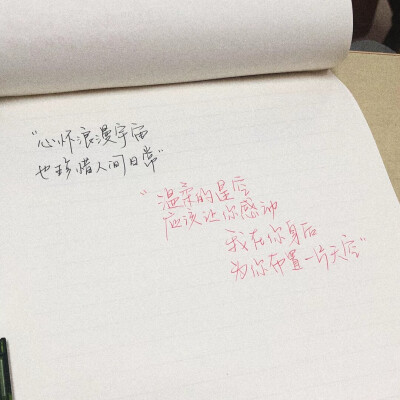 “心怀浪漫宇宙
也珍惜人间日常”
“温柔的星空
应该让你感动
我在你身后
为你布置一片天空”